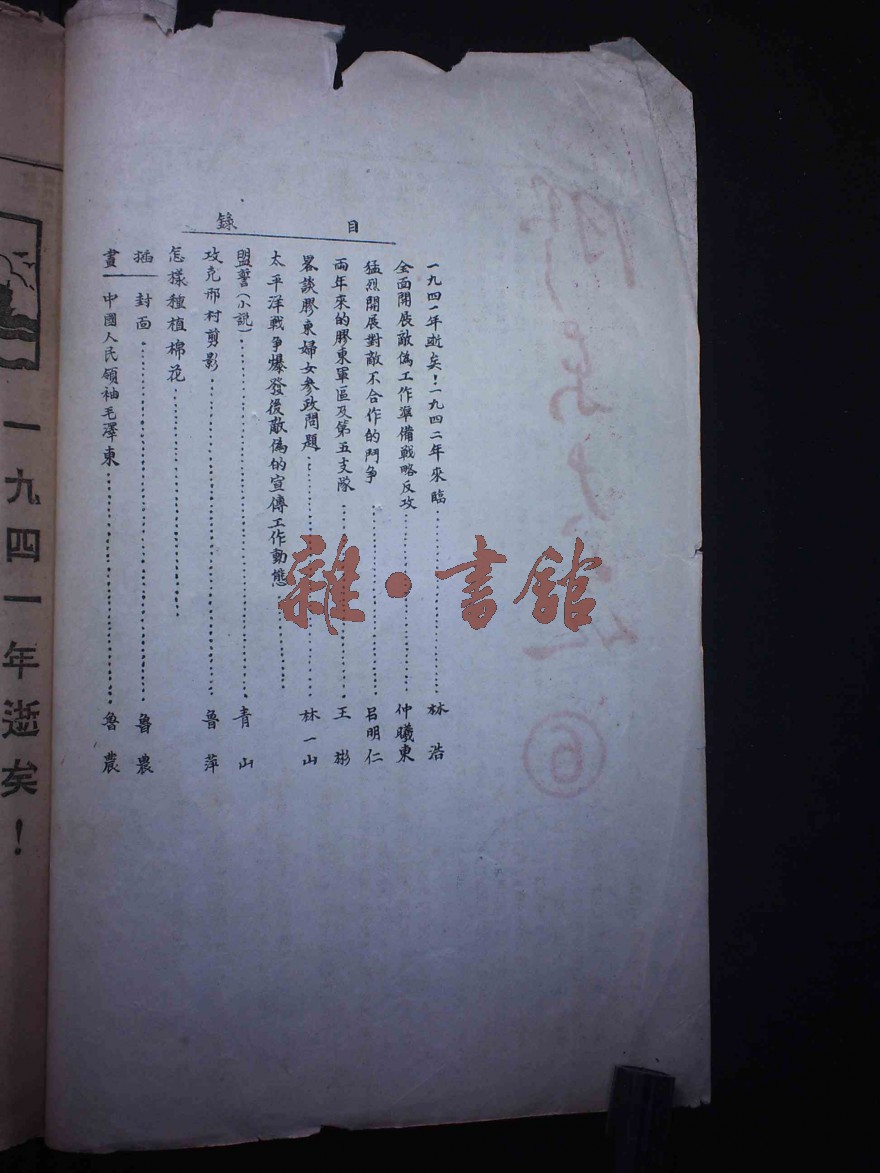 目錄
一九四一年逝矣！一九四二年來臨…………林浩
全面開展敵偽工作準備戰略反攻…………仲曦東
猛烈開展對敵不合作的鬥争…………呂明仁
兩年來的膠東軍區及第五支隊…………王彬
畧談膠東婦女參政問題…………林一山
太平洋戰争爆發後敵偽的宣傳工作動態…………
盟誓（小說）…………青山
攻克邢村剪影…………魯萍
怎樣種植棉花…………
插畫
封面…………魯農
中國人民領袖毛澤東…………魯農
一九四一年逝矣！
雜·書館
⑥